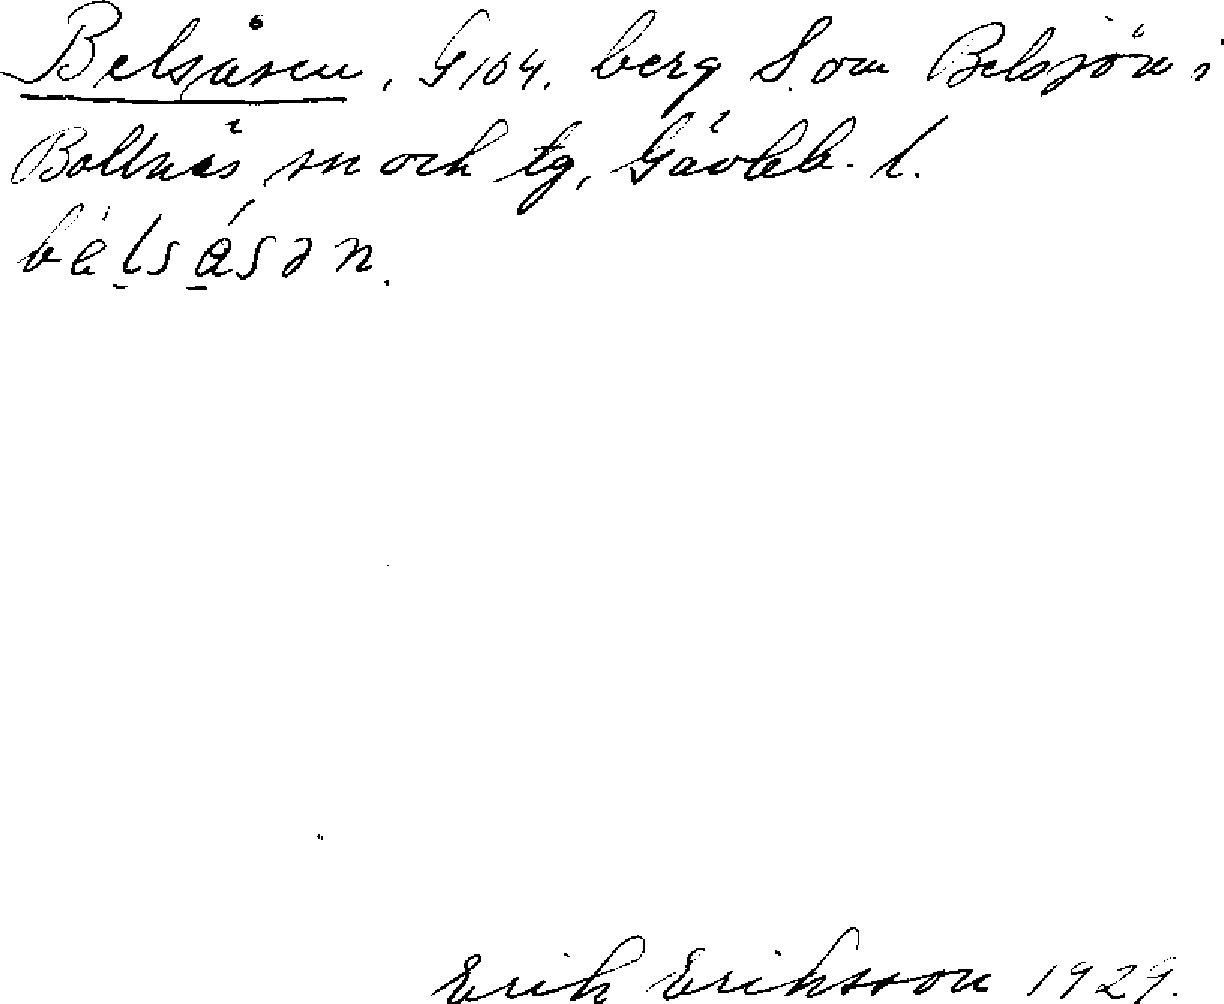 Belsåsen, G 104. berg S. om Belsjön i
Bollnäs sn och tg, Gävleb. l.
bèlsásən.
Erik Eriksson 1929.